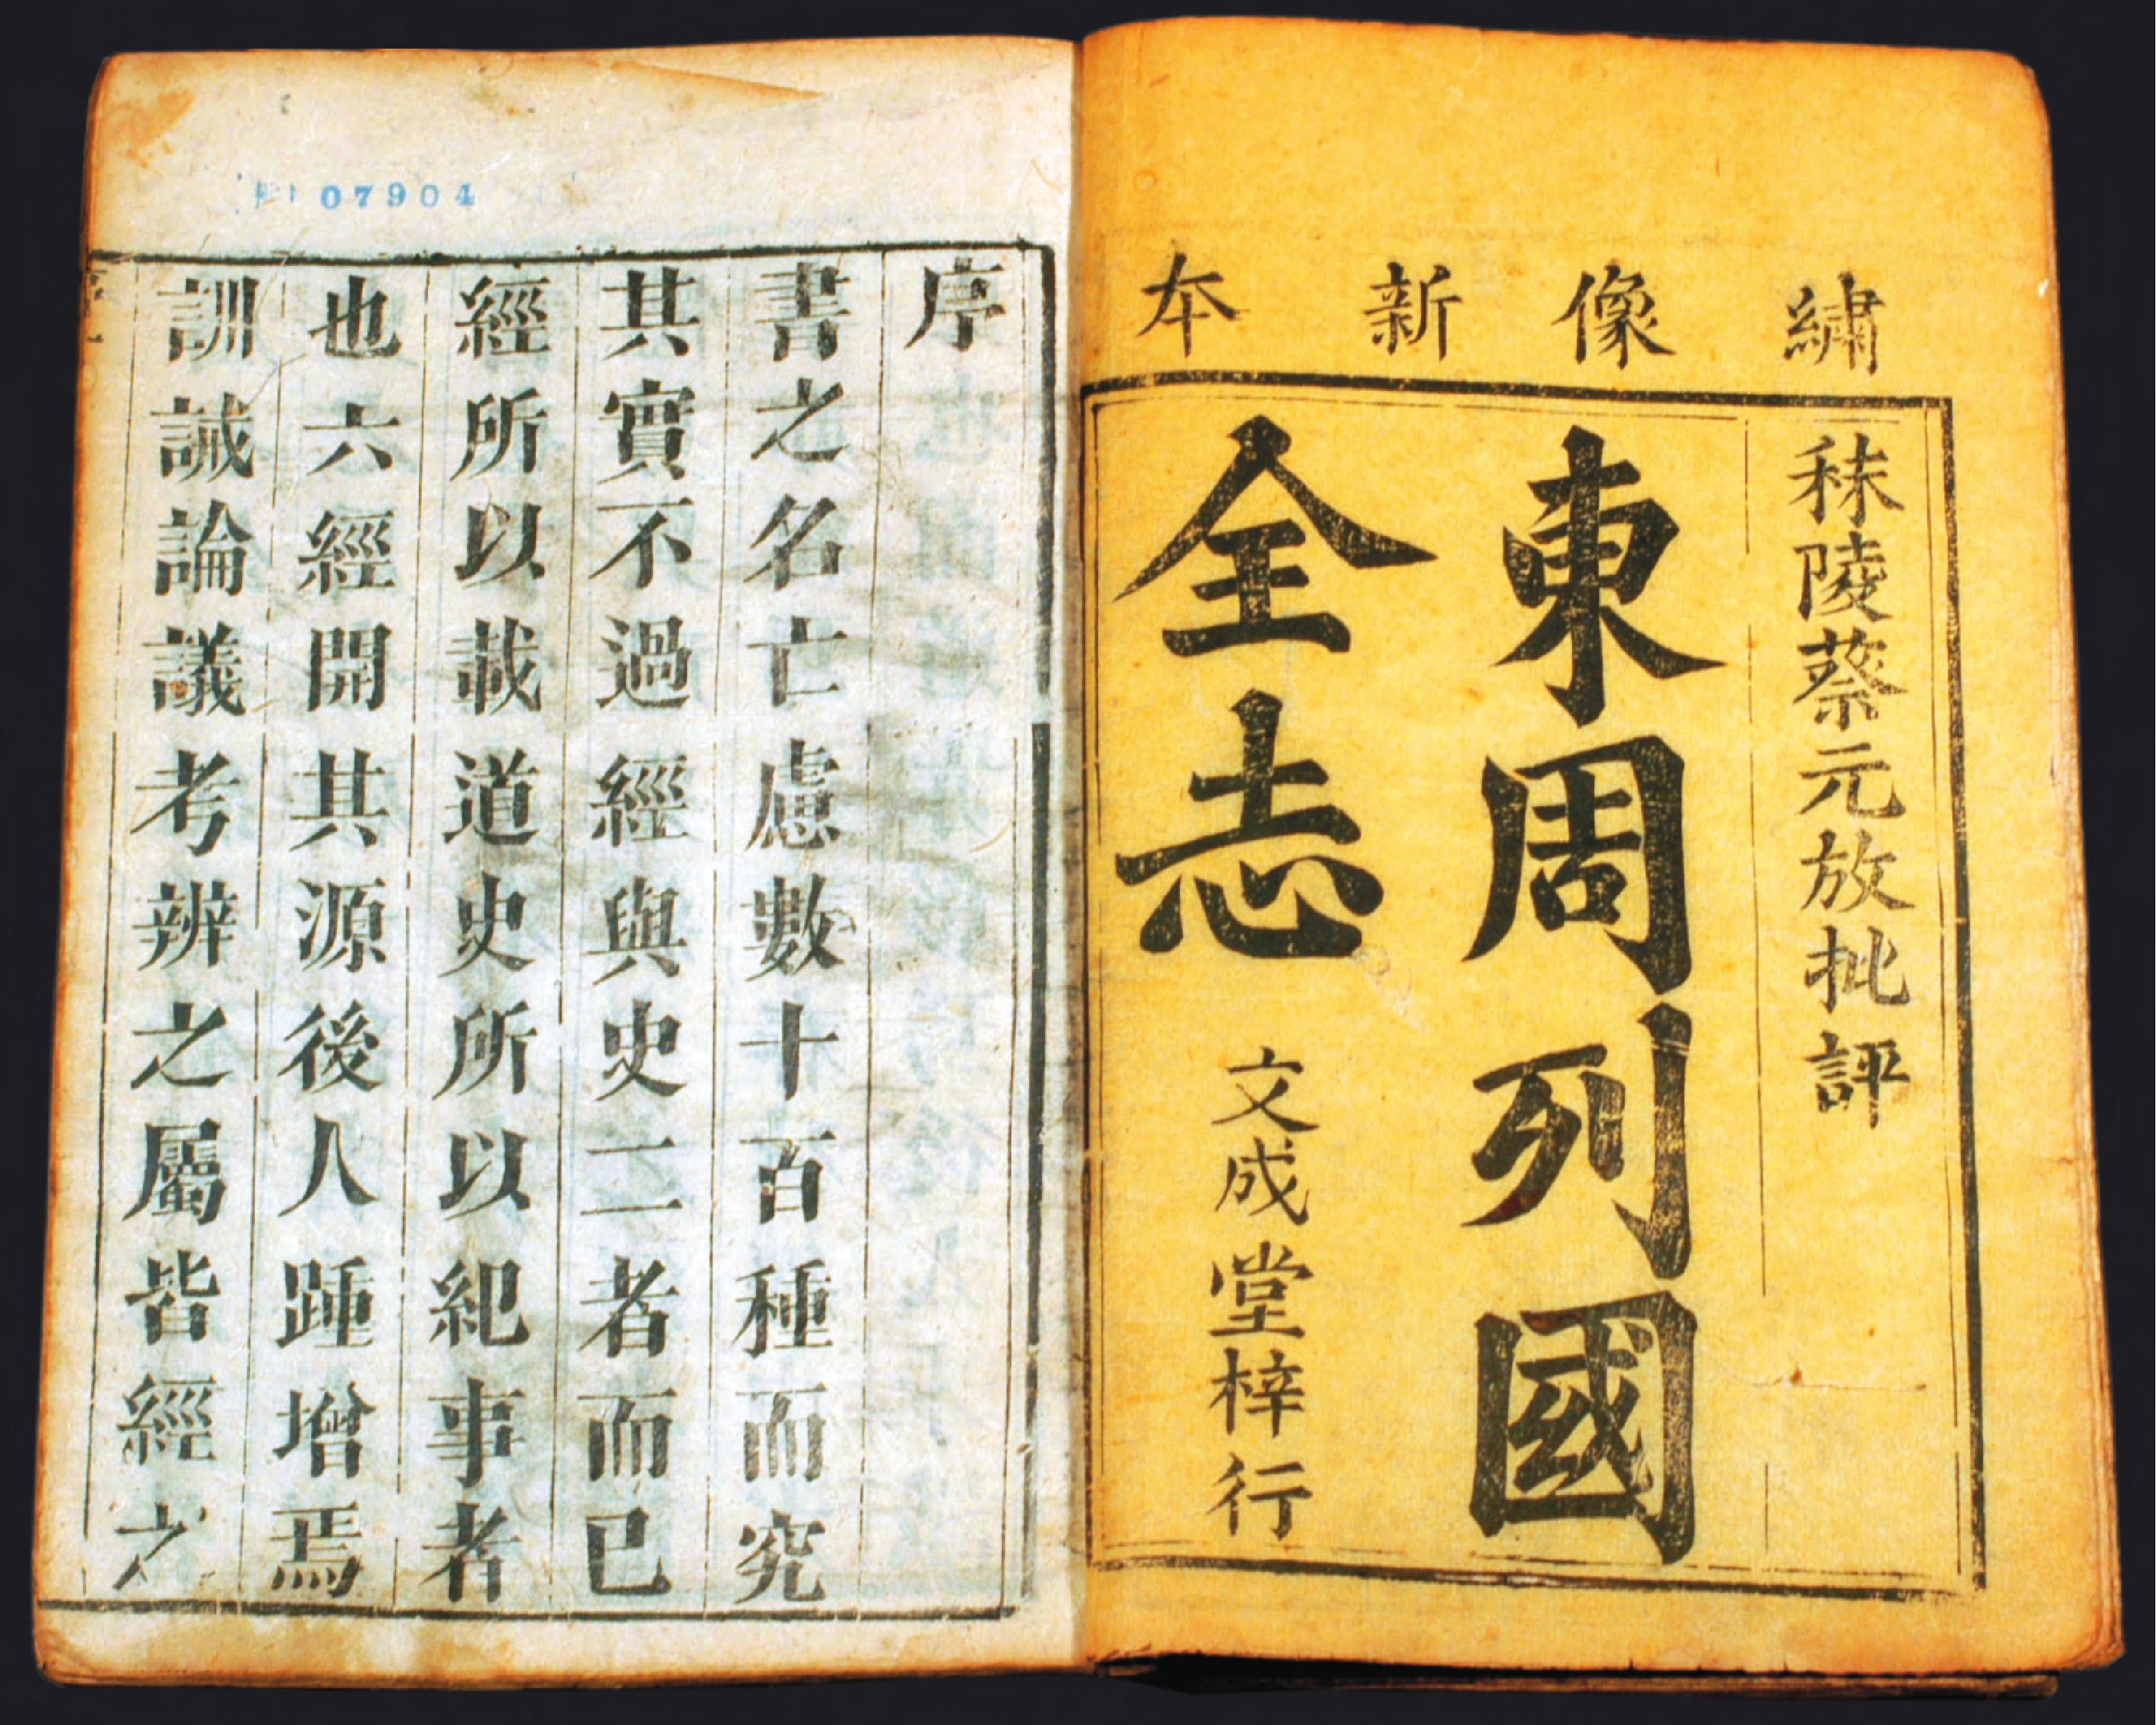 繡像新本
秣陵蔡元放批評
東周列國
全志
文成堂梓行
07904
序
書之名亡慮數十百種而究
其實不過經與史二者而已
經所以載道史所以紀事者
也六經開其源後人踵增焉
訓誡論議考辨之屬皆經之